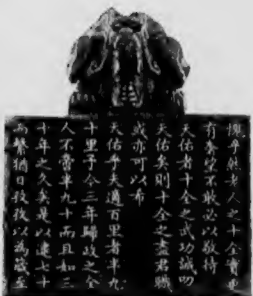 愧乎然老人之十全實更
有奢望不敢必以敬待
天佑者十全之武功誠叨
天佑矣則十全之盡君職
或亦可以希
天佑乎夫適百里者半九
十里予今三年歸政之全
人不當半九十而且如三
十年之久矣是以逮七十
而繫猶日孜孜以為箴至